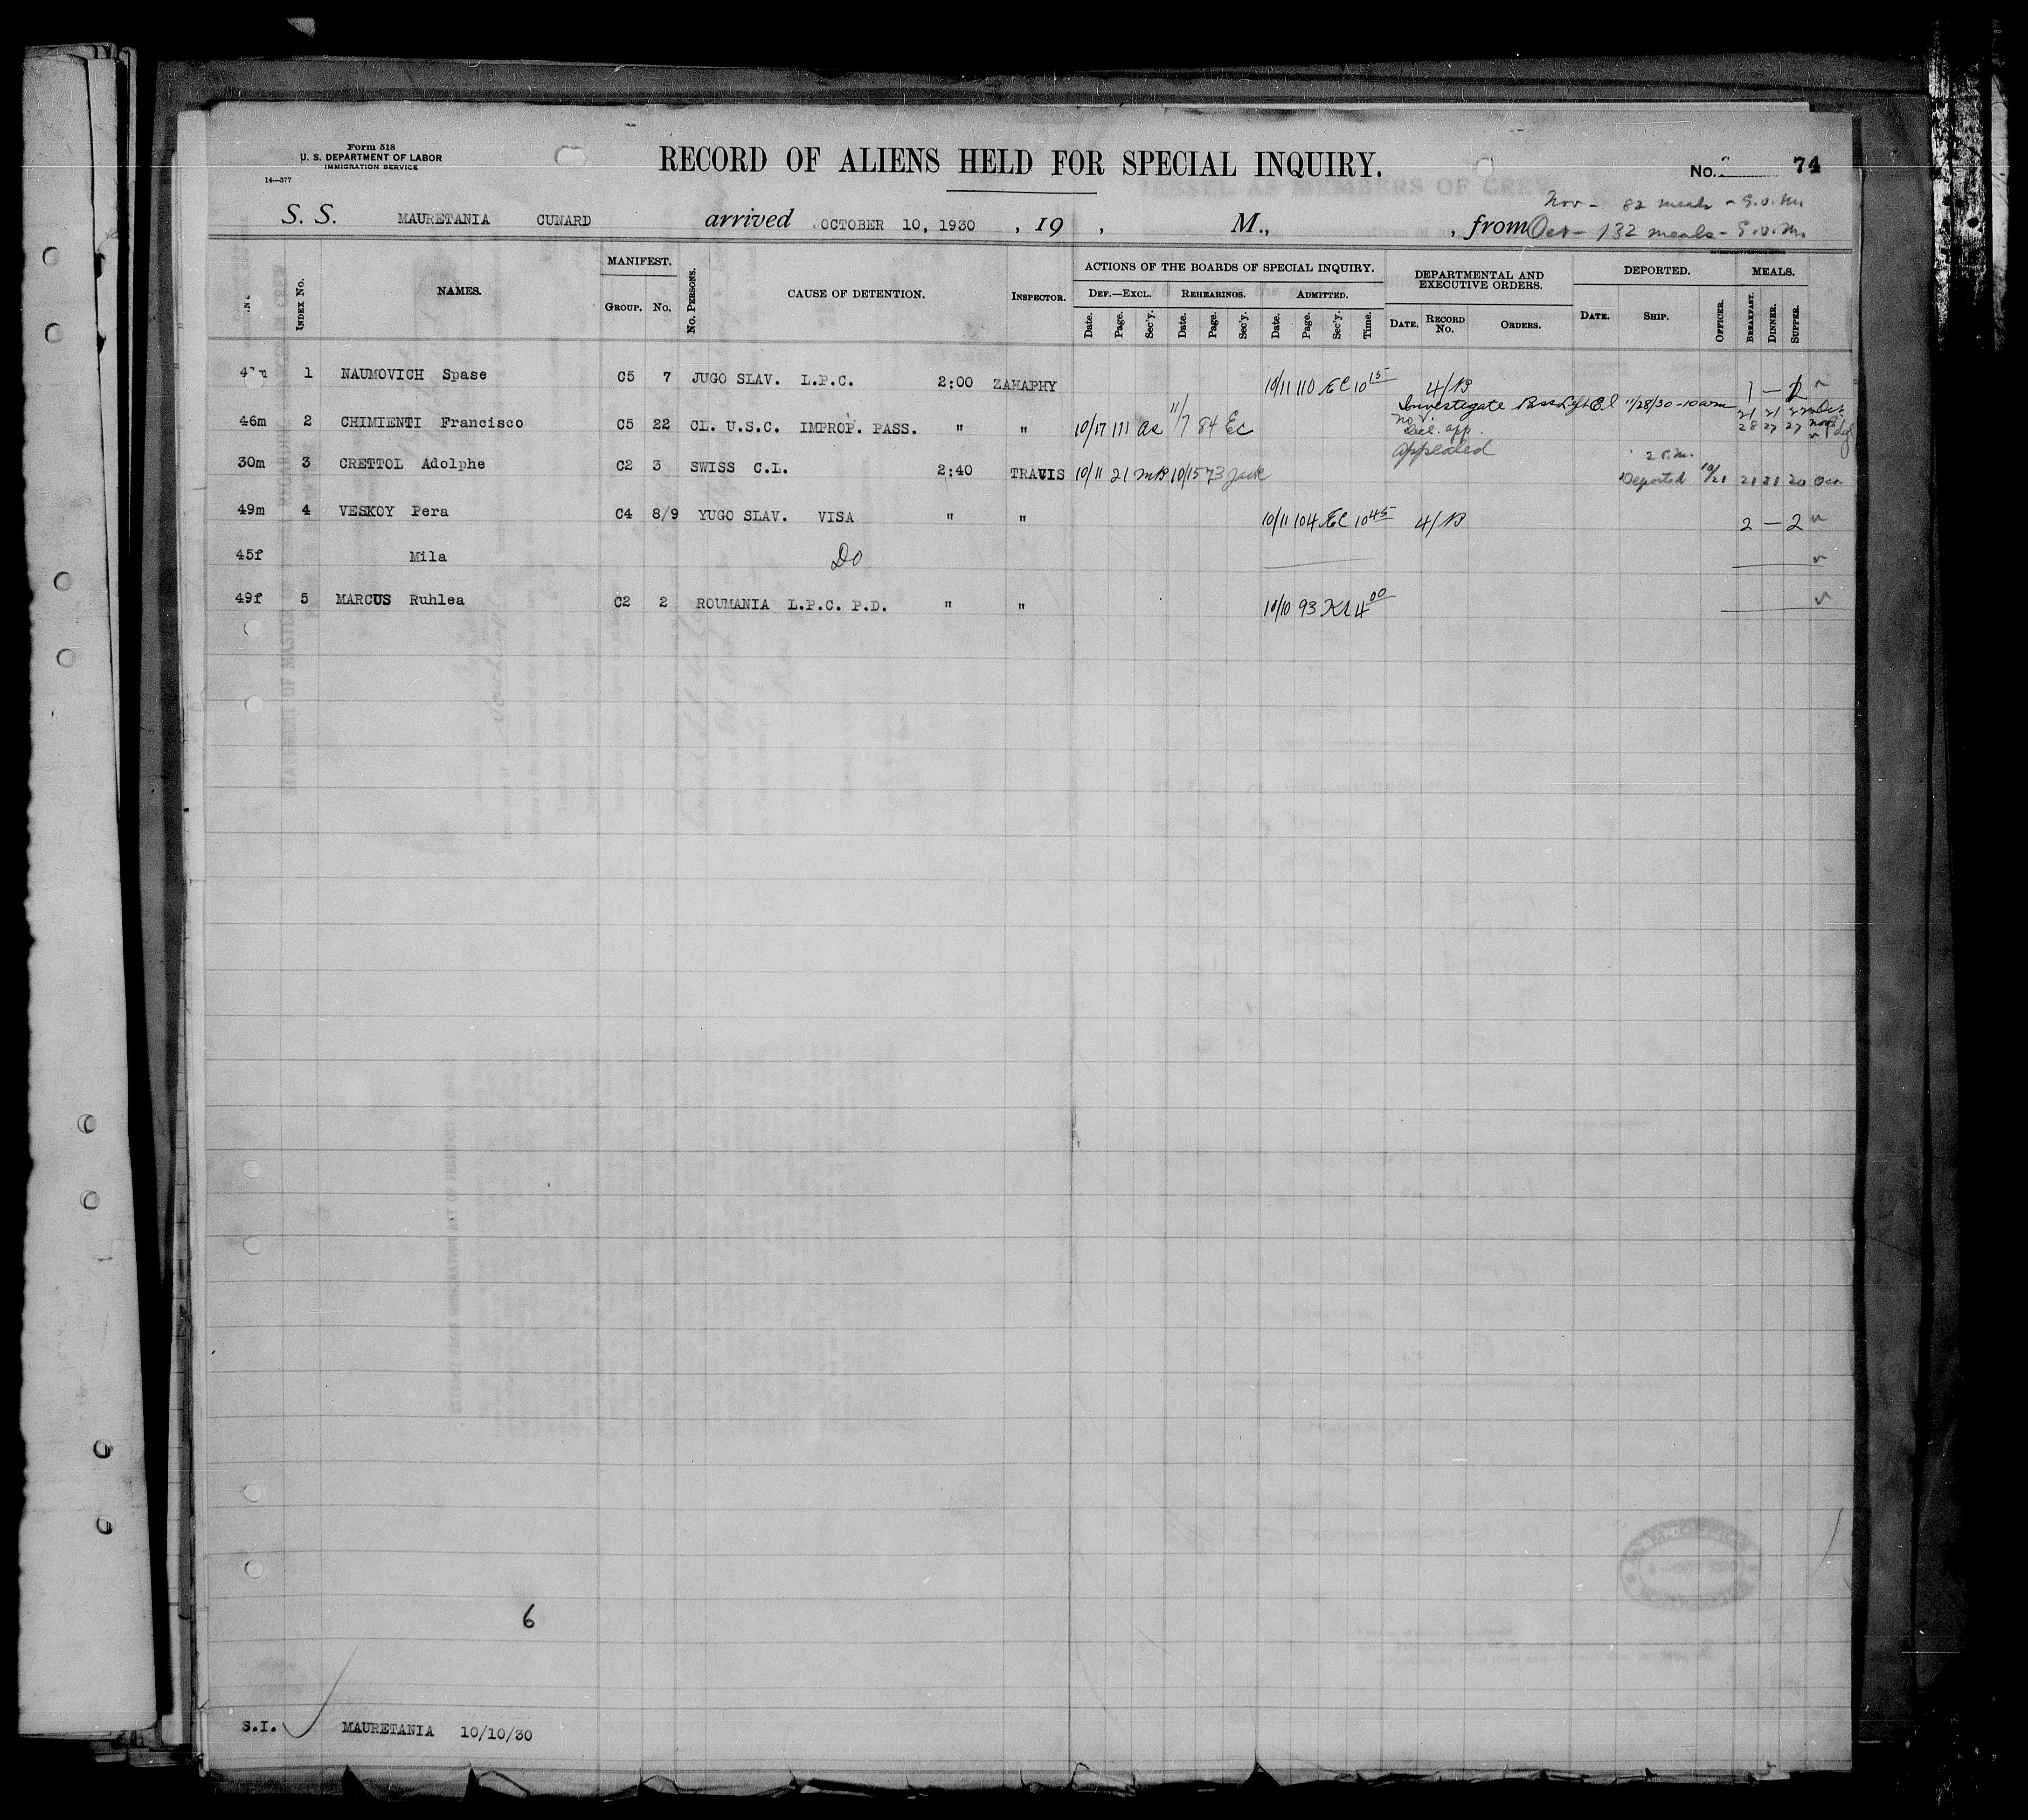 Form 518
U. S. DEPARTMENT OF LABOR
IMMIGRATION SERVICE
14—377
RECORD OF ALIENS HELD FOR SPECIAL INQUIRY.
No. 74
Nov - 82 meals - S.O.M.
S. S. MAURETANIA CUNARD arrived OCTOBER 10, 1930 , 19 , M., , from Oct - 132 meals - S.O.M.
INDEX No. NAMES. MANIFEST. GROUP. No. No. PERSONS. CAUSE OF DETENTION. INSPECTOR. ACTIONS OF THE BOARDS OF SPECIAL INQUIRY. DEPARTMENTAL AND EXECUTIVE ORDERS. DEPORTED. MEALS.
DEF.—EXCL. REHEARINGS. ADMITTED.
Date. Page. Sec'y. Date. Page. Sec'y. Date. Page. Sec'y. Time. DATE. RECORD No. ORDERS. DATE. SHIP. OFFICER. BREAKFAST. DINNER. SUPPER.
1 NAUMOVICH Spase C5 7 JUGO SLAV. L.P.C. 2:00 ZAHAPHY 10/11 110 EC 10 15 4/B 1 — 2
Investigate 11/28/30 - 10 am 21 21 22 Oct
46m 2 CHIMIENTI Francisco C5 22 CL. U.S.C. IMPROP. PASS. " " 10/17 111 as 11/7 84 EC 28 27 27 Nov
appealed
30m 3 CRETTOL Adolphe C2 3 SWISS C.L. 2:40 TRAVIS 10/11 21 MB 10/15 73 Jack 2 P.M. Deported 10/21 21 21 20 Oct
49m 4 VESKOY Pera C4 8/9 YUGO SLAV. VISA " " 10/11 104 EC 10 45 4/B 2 — 2
45f Mila Do
49f 5 MARCUS Ruhlea C2 2 ROUMANIA L.P.C. P.D. " " 10/10 93 4 00
6
S.I. MAURETANIA 10/10/30